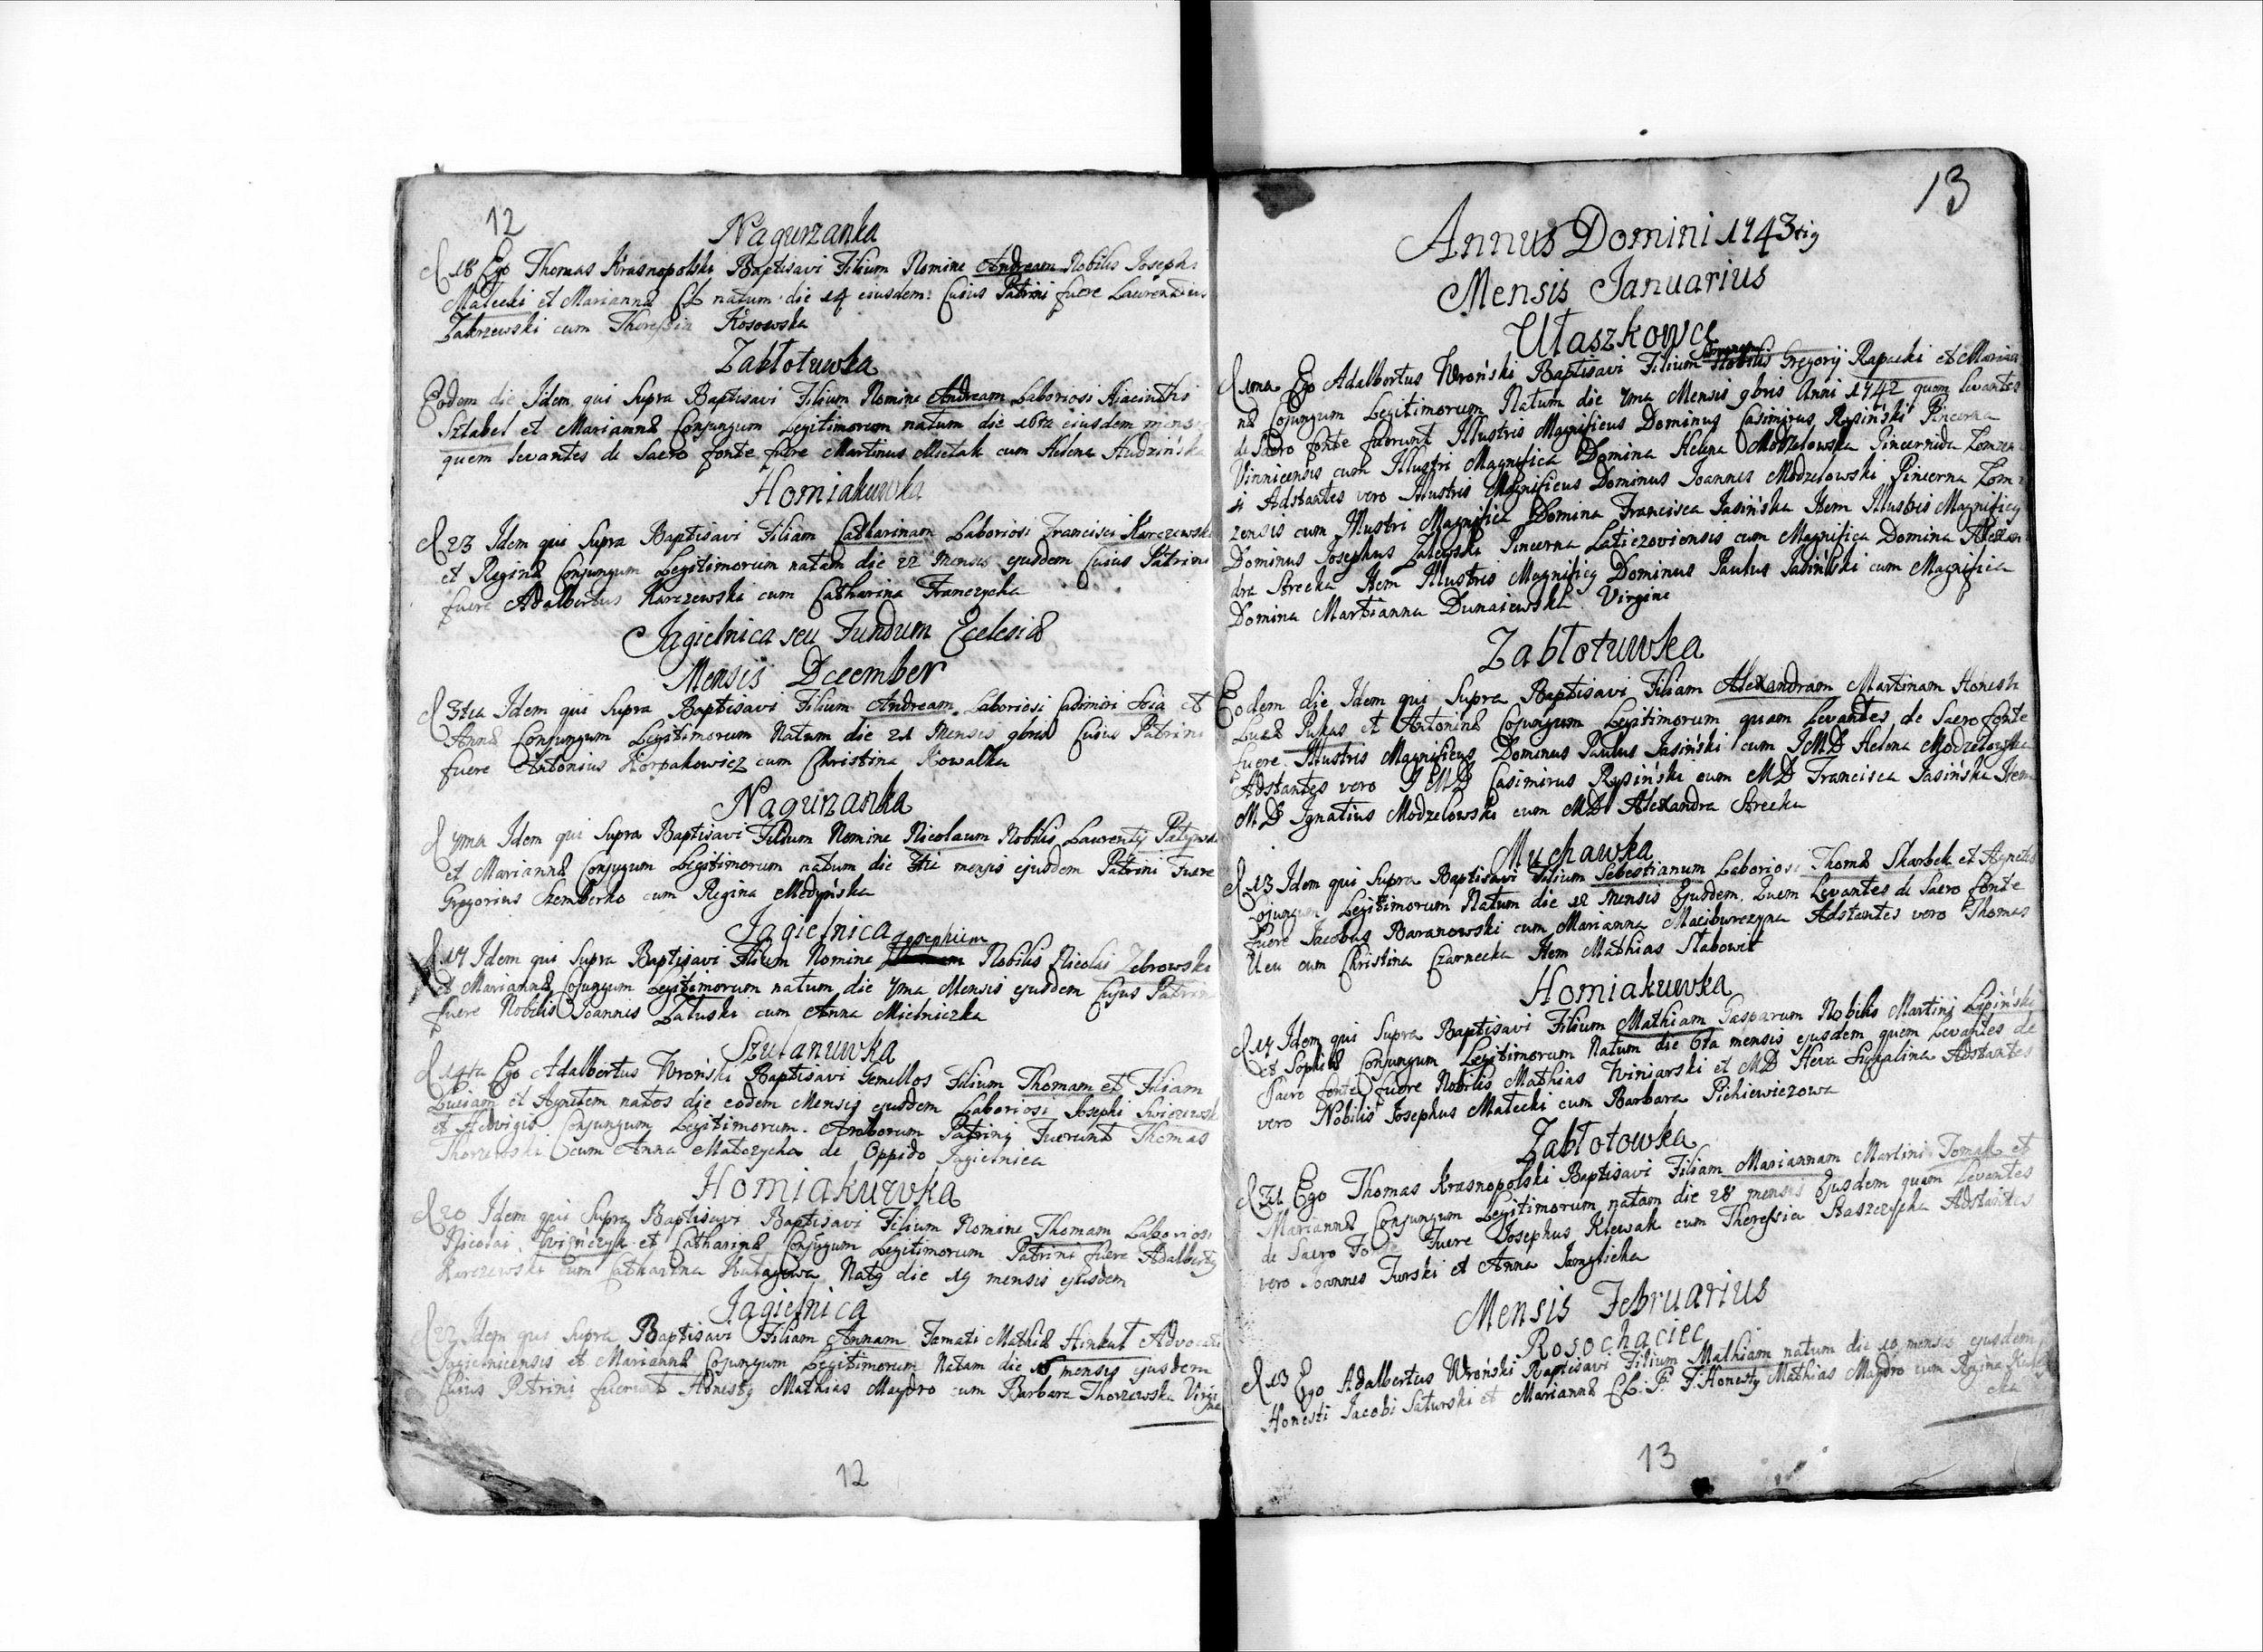 12
Nagurzanka
d 18 Ego Thomas Krasnopolski Baptisavi Filium Nomine Andream Nobilis Josephi
Małecki et Mariannæ CL natum die 14 eiusdem: Cuius Patrini fuere Laurentius
Zakrzewski cum Theressia Kosowska
Zabłotuwka
Eodem die Idem qui Supra Baptisavi Filium Nomine Andream Laboriosi Hiacinthi
Sztabel et Mariannæ Conjungum Legitimorum natum die 16ta eiusdem mensis
quem levantes de Sacro fonte fuere Martinus Mietak cum Helena Hudzińska
Homiakuwka
d 23 Idem qui Supra Baptisavi Filiam Catharinam Laboriosi Francisci Karczewski
et Reginæ Conjungum Legitimorum natam die 22 Mensis ejusdem Cuius Patrini
fuere Adalbertus Karczewski cum Catharina Franczycha
Jagielnica seu Fundum Eclesiæ
Mensis December
d 3tia Idem qui Supra Baptisavi Filium Andream Laboriosi Casimiri et
Annæ Conjungum Legitimorum Natum die 21 Mensis 9bris Cuius Patrini
fuere Antonius Korpakowicz cum Christina Kowalka
Nagurzanka
d 7ma Idem qui Supra Baptisavi Filium Nomine Nicolaum Nobilis Laurentij
et Mariannæ Conjugum Legitimorum natum die 3tia mensis ejusdem Patrini Fuere
Gregorius Szemberko cum Regina Medyńska
Jagielnica
Josephum
d 17 Idem qui Supra Baptisavi Filium Nomine Nobilis Nicolai Zebrowski
et Mariannæ Cojungum Legitimorum natum die 7ma Mensis ejusdem Cujus Patrini
fuere Nobilis Joannis Załuski cum Anna Mielniczka
Szulanuwka
d 14ta Ego Adalbertus Wroński Baptisavi Gemellos Filium Thomam et Filiam
Luciam et Agnetem natos die eodem Mensis ejusdem Laboriosi Josephi
et Hedvigis Conjungum Legitimorum. Amborum Patrini Fuerunt Thomas
Thorzewski cum Anna Matczycha de Oppido Jagielnica
Homiakuwka
d 20 Idem qui Supra Baptisavi Baptisavi Filium Nomine Thomam Laboriosi
Nicolai et Catharinæ Conjugum Legitimorum Patrini fuere Adalbertg
Karczewski cum Catharina Natg die 19 mensis ejusdem
Jagielnica
d 22 Idem qui Supra Baptisavi Filiam Annam Famati Mathiæ Hinkut Advocati
Jagielnicensis et Mariannæ Cojungum Legitimorum Natam die mensis ejusdem
Cuius Patrini fuerunt Honestg Mathias Maydro cum Barbara Thorzewska Virgi
ne
12
13
Annus Domini 1743tig
Mensis Januarius
Ułaszkowce
d 1ma Ego Adalbertus Wroński Baptisavi Filium Nobilis Gregorij Rapacki et Marian
næ Cojungum Legitimorum Natum die 7ma Mensis 9bris Anni 1742 quem levantes
de Sacro fonte fuerunt Illustris Magnificus Dominus Casimirus Rysiński Pincerna
Vinnicensis cum Illustri Magnifica Domina Helena Modzelowska Pincernida
Adstantes vero Illustris Magnificus Dominus Joannes Modzelowski Pincerna Zom
zensis cum Illustri Magnifica Domina Francisca Jasińska Item Illustris Magnificg
Dominus Josephus Zalewski Pincerna Laticzoviensis cum Magnifica Domina Alexan
dra Strecka Item Illustris Magnificg Dominus Paulus Jasiński cum Magnifica
Domina Martianna Dunaiewska Virgine
Zabłotuwka
Eodem die Idem qui Supra Baptisavi Filiam Alexandram Martinam Honesti
Lucæ Pukas et Antoninæ Cojungum Legitimorum quam Levantes de Sacro fonte
fuere Illustris Magnificus Dominus Paulus Jasiński cum IMD Helena Modzelowska
Adstantes vero IMD Casimirus Rysiński cum MD Francisca Jasińska Item
MD Ignatius Modzelowski cum MD Alexandra Strecka
Muchawka
d 13 Idem qui Supra Baptisavi Filium Sebestianum Laboriosi Thomæ Skarbek et Agnetis
Cojungum Legitimorum Natum die 12 Mensis Ejusdem. Quem Levantes de Sacro fonte
fuere Jacobus Baranowski cum Marianna Maciburczyna Adstantes vero Thomas
Ueu cum Christina Czarnecka Item Mathias Słabowit
Homiakuwka
d 17 Idem qui Supra Baptisavi Filium Mathiam Gasparum Nobilis Martini Lipiński
et Sophiæ Conjungum Legitimorum Natum die 6ta mensis ejusdem quem Levantes de
Sacro fonte fuere Nobilis Mathias Winiarski et MD Heva Adstantes
vero Nobilis Josephus Małecki cum Barbara Pichiewiczowa
Zabłotowka
d 31 Ego Thomas Krasnopolski Baptisavi Filiam Mariannam Martini Tomak et
Mariannæ Conjungum Legitimorum natam die 28 mensis Ejusdem quam Levantes
de Sacro Fonte Fuere Josephus Klewak cum Theressia Staszczycha Adstantes
vero Joannes Turski et Anna
Mensis Februarius
Rosochaciec
d 13 Ego Adalbertus Wroński Baptisavi Filium Mathiam natum die 10 mensis ejusdem
Honesti Jacobi Saturski et Mariannæ CL. P. F. Honestg Mathias Maydro cum Regina
cka
13